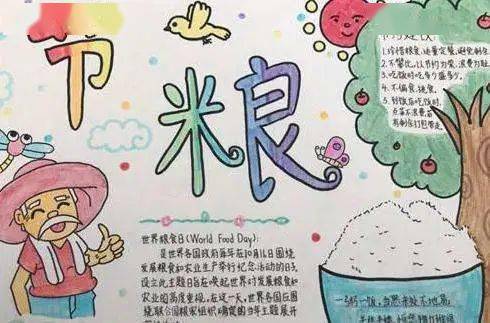 节
粮
1.珍惜粮食,适量定餐,避免剩
2.不攀比,以节约为荣,浪费为耻
3.吃饭时吃多少盛多少。
4.不偏食、挑食。
5.到饭店吃饭时,
点菜不浪费,若
有剩余打包带走。
世界粮食日(World Food Day):
是世界各国政府每年在10月16日围绕
发展粮食和农业生产举行纪念活动的日子。
设立此主题日旨在唤起世界对发展粮食和
农业的高度重视。在这一天,世界各国应围
绕联合国粮农组织确定的当年主题展开
一粥一饭,当思来处不地易,